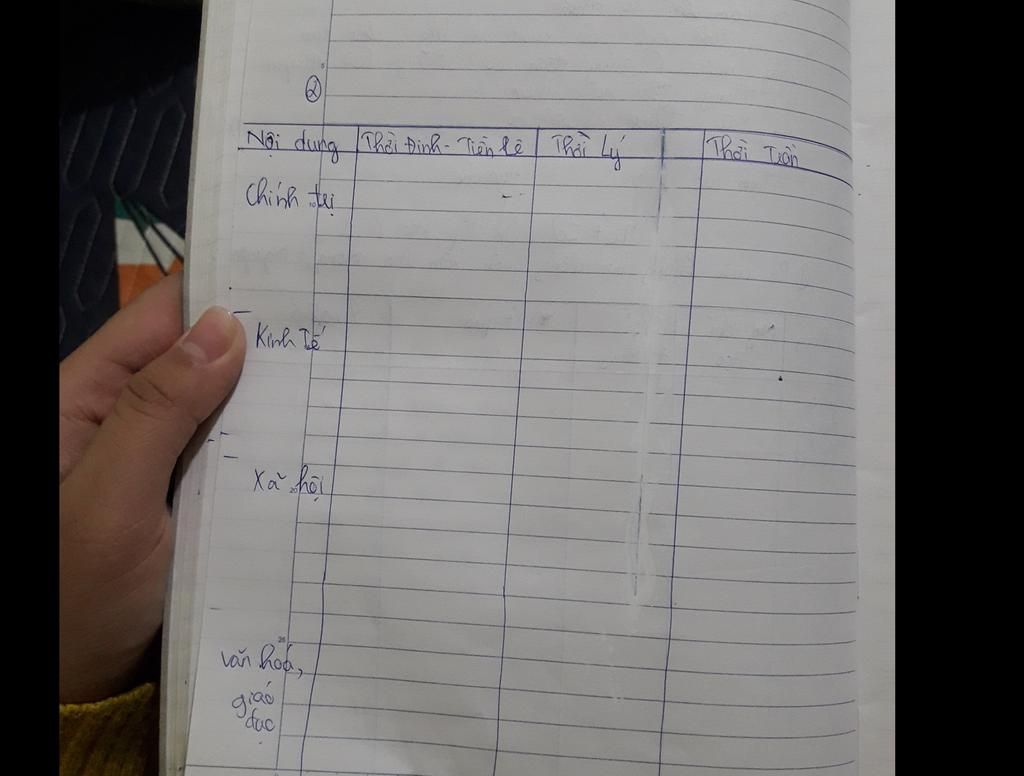 ②
Nội dung Thời Đinh - Tiền Lê Thời Lý Thời Trần
Chính trị
Kinh Tế
Xã hội
Văn hoá,
giáo
dục